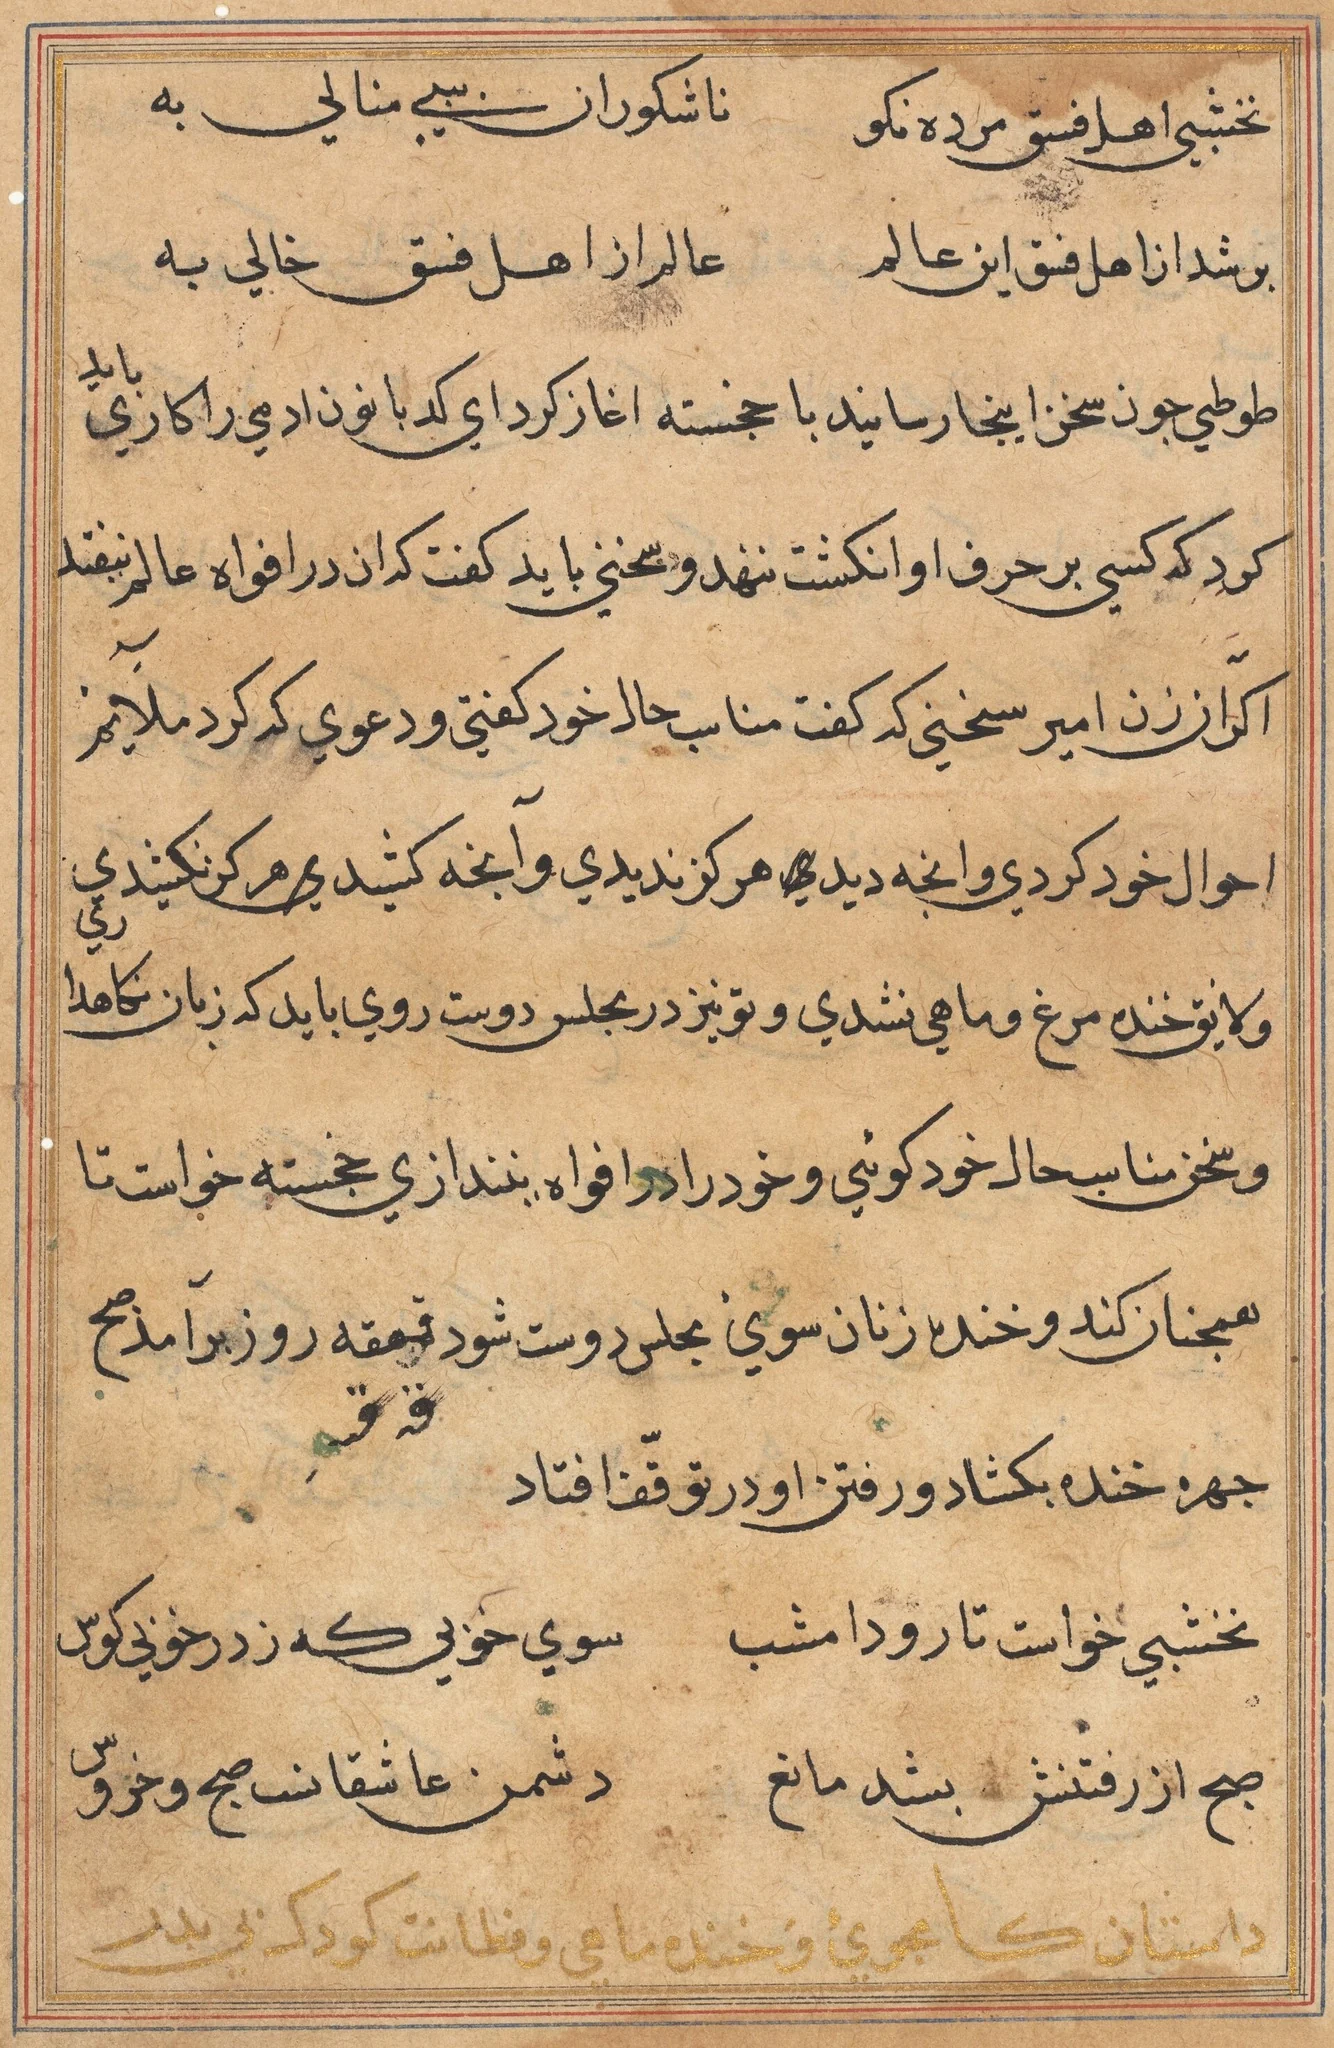 نخشبي اهل فسق مرده نكو ناشكوران زيبي منالي به
بر شد از اهل فسق اين عالم عالم از اهل فسق خالي به
طوطي جون سخن اينجا رسانيد با خجسته اغاز كرد اي كدبانون ادمي را كاري بايد
كرد كه كسي بر حرف او انكشت ننهد و سخني بايد كفت كه ان در افواه عالم نيفتد
اكر ان زن امير سخني كه كفت مناسب حال خود كفتي و دعوي كه كرد ملايم
احوال خود كردي و انجه ديدي هركز نديدي و آنجه كشيدي هركز نكشيدي
و لايق خنده مرغ و ماهي نشدي و تو نيز در مجلس دوست روي بايد كه زبان نكاهداري
و سخن مناسب حال خود كوئي و خود را در افواه نيندازي خجسته خواست تا
همجنان كند و خنده زنان سوي مجلس دوست شود قهقهه روز برآمد صبح
جهره خنده بكشاد و رفتن او در توقّف افتاد
نخشبي خواست تا رود امشب سوي خوبي كه زد در خوبي كوس
صبح از رفتنش بشد مانع دشمن عاشقانست صبح و خروس
داستان كامجوي و خنده ماهي و فطانت كودك بي بدر